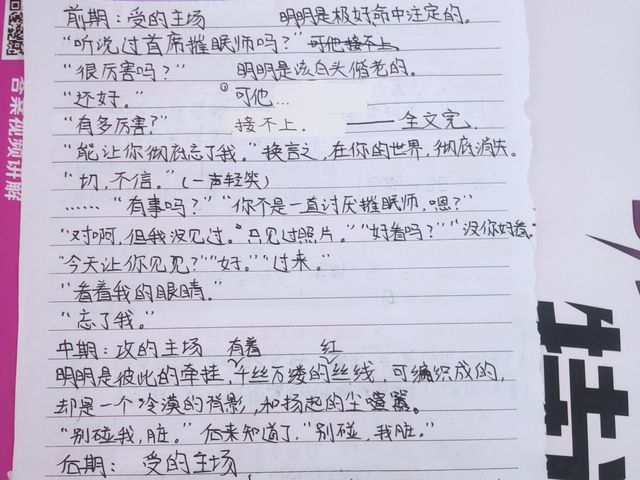 前期：受的主场 明明是极好命中注定的。
“听说过首席摧眠师吗？” 可他接不上
“很厉害吗？” 明明是该白头偕老的。
“还好。” ① 可他…
“有多厉害？” 接不上。 —— 全文完
“能让你彻底忘了我。”换言之，在你的世界，彻底消失。
“切，不信。”（一声轻笑）
……“有事吗？”“你不是一直讨厌摧眠师，嗯？”
“对啊，但我没见过。”只见过照片。”“好看吗？”“没你好看。”
“今天让你见见？”“好。”“过来。”
“看着我的眼睛。”
“忘了我。”
中期：攻的主场 有着 红
明明是彼此的牵挂，千丝万缕的丝线，可编织成的，
却是一个冷漠的背影，和扬起的尘喧嚣。
“别碰我，脏。” 后来知道了，“别碰，我脏。”
后期： 受的主场
答案视频讲解